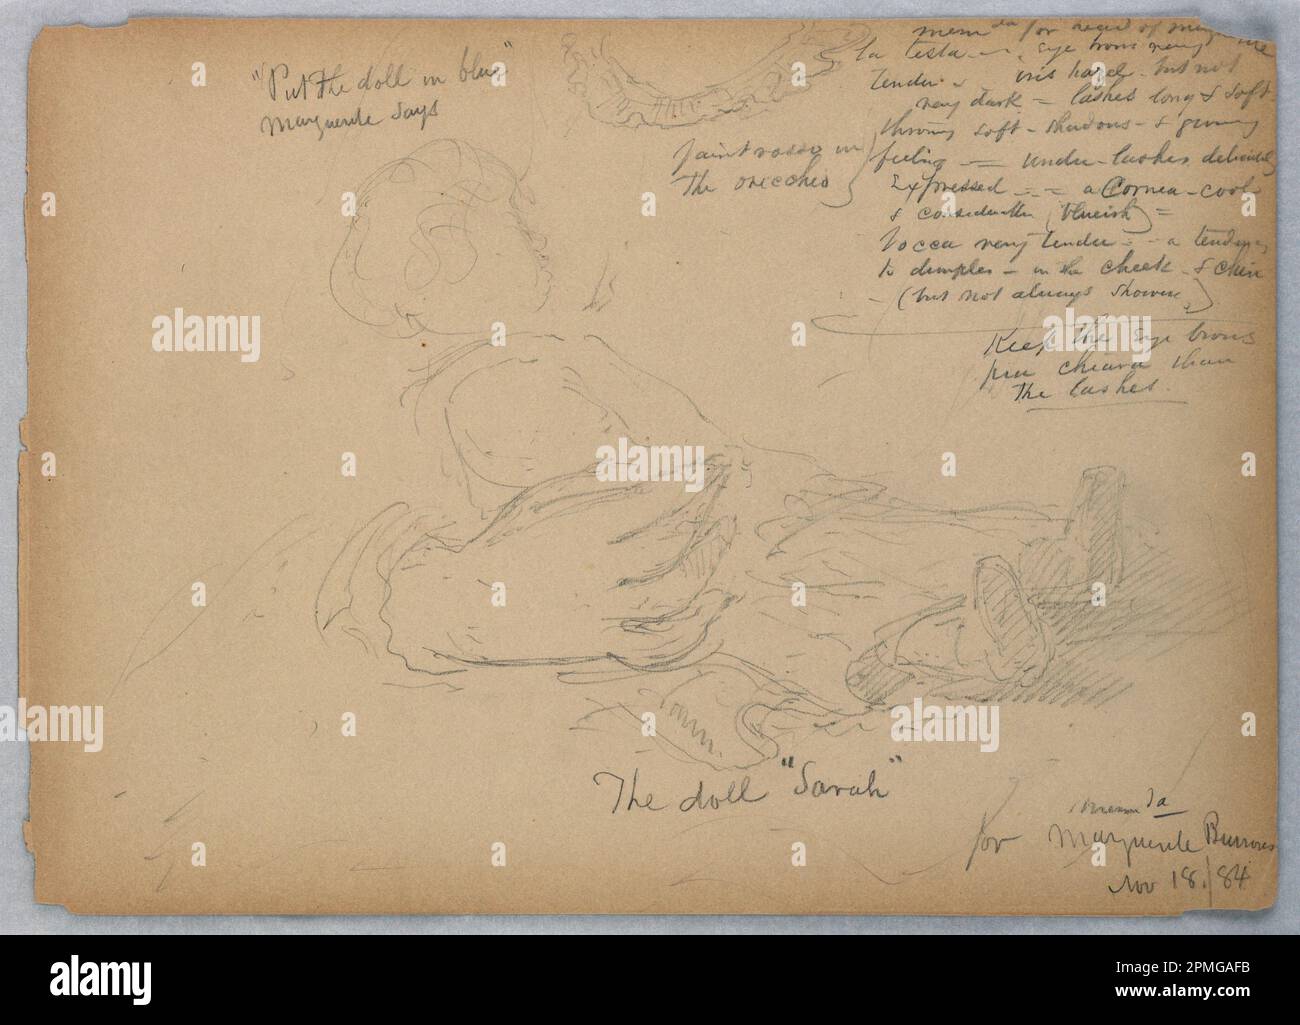 "Put the doll in blue"
Marguerite says
mem da for head of Marguerite
la testa - eye brows very
tender & iris hazel - but not
very dark = lashes long & soft
throwing soft - shadows - & giving
feeling = under-lashes delicately
expressed = = a Cornea - cool
& considerably (blueish) =
bocca very tender - - a tendency
to dimples - in the cheek - & chin
- (but not always shown)
Keep the eye brows
piu chiara than
the lashes.
faint rosso in
the orecchio
The doll "Sarah"
mem da
for Marguerite Burrows
Nov 18./84
alamy
alamy
Image ID: 2PMGAFB
www.alamy.com